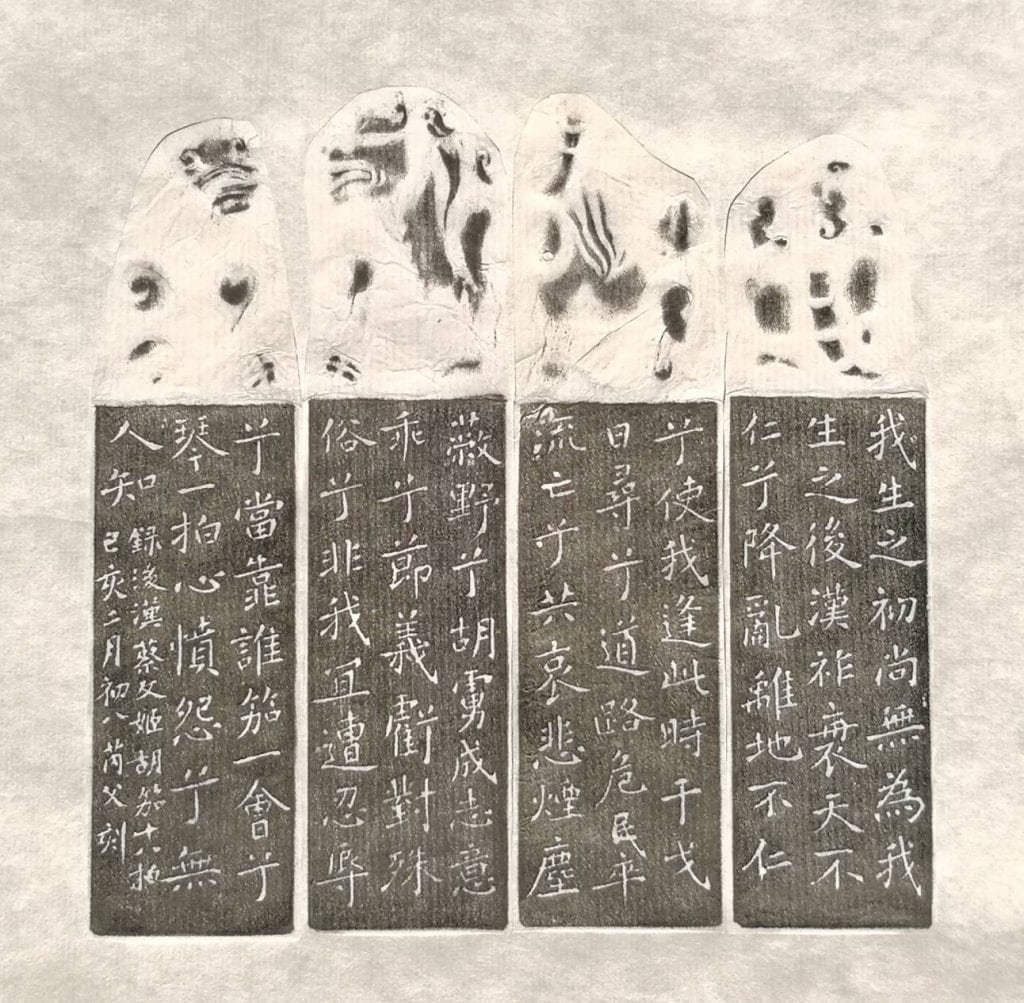 我生之初尚無為我
生之後漢祚衰天不
仁兮降亂離地不仁
兮使我逢此時干戈
日尋兮道路危民卒
流亡兮共哀悲煙塵
蔽野兮胡虜成志意
乖兮節義虧對殊
俗兮非我宜遭忍辱
兮當靠誰笳一會兮
琴一拍心憤怨兮無
人知
録後漢蔡文姬胡笳十八拍
己亥二月初八芮父刻